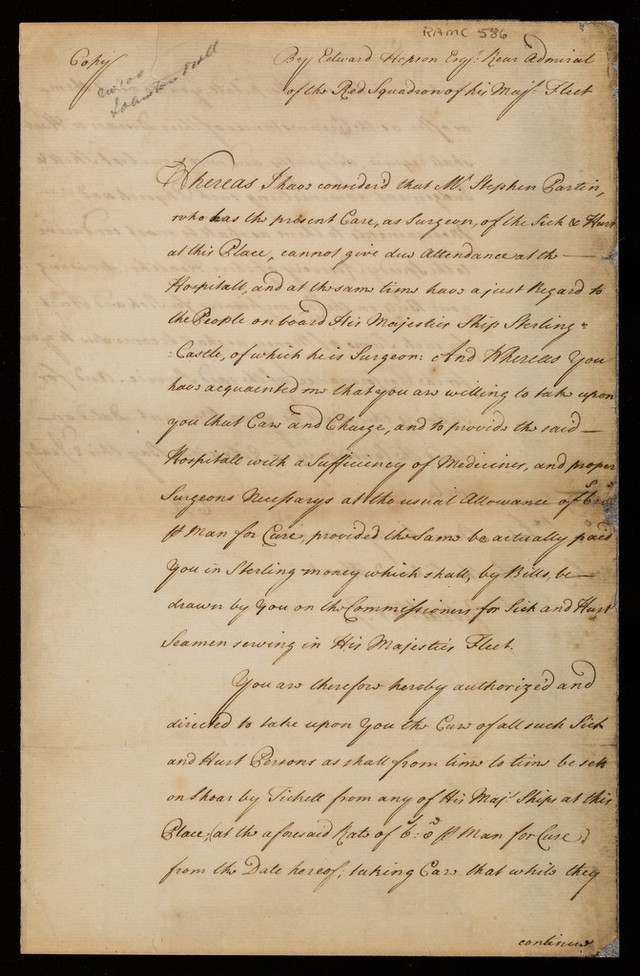 RAMC 586
Copy
By Edward Hopson Esqr. Rear Admiral
of the Red Squadron of his Majs. Fleet
Whereas I have consider'd that Mr. Stephen Partin,
who has the present Care, as Surgeon, of the Sick & Hurt
at this Place, cannot give due Attendance at the —
Hospitall, and at the same time have a just Regard to
the People on board His Majesties Ship Sterling=
:Castle, of which he is Surgeon: And Whereas You
have acquainted me that you are willing to take upon
you that Care and Charge, and to provide the said —
Hospitall with a Sufficiency of Medicines, and proper
Surgeons Necessarys at the usual Allowance of
℔ Man for Cure, provided the Same be actually paid
You in Sterling money which shall, by Bills, be —
drawn by You on the Commissioners for Sick and Hurt
Seamen serving in His Majesties Fleet.
You are therefore hereby authoriz'd and
directed to take upon You the Cure of all such Sick
and Hurt Persons as shall from time to time be sett
on Shoar by Tickett from any of His Majs. Ships at this
Place, (at the aforesaid Rate of 6s: 8d ℔ Man for Cure)
from the Date hereof; taking Care that while they
continue